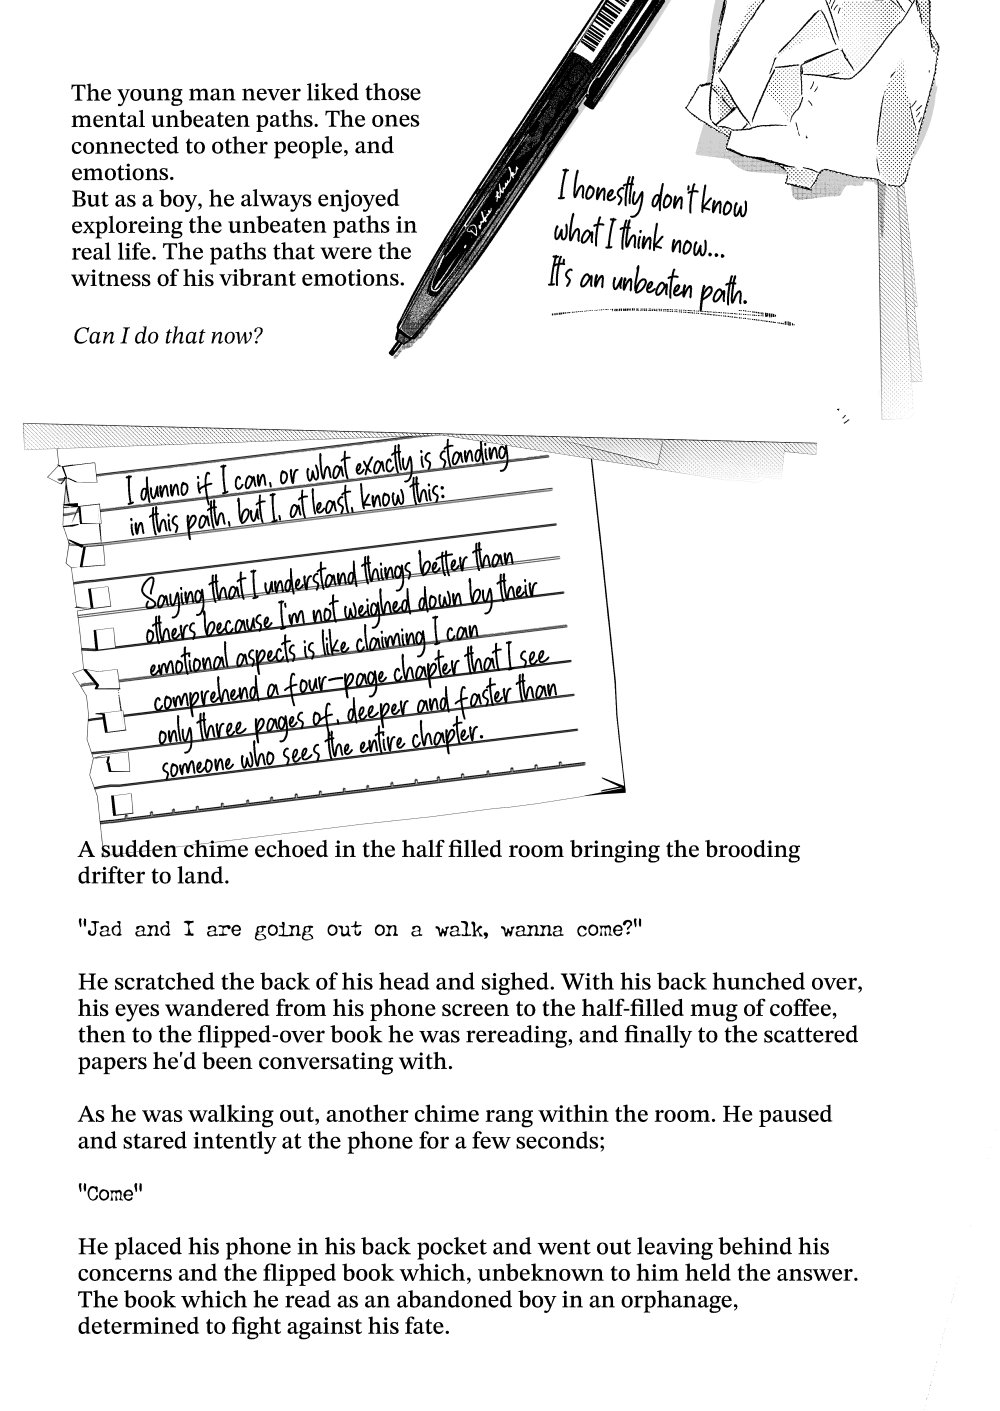 The young man never liked those
mental unbeaten paths. The ones
connected to other people, and
emotions.
But as a boy, he always enjoyed
exploreing the unbeaten paths in
real life. The paths that were the
witness of his vibrant emotions.
Can I do that now?
I honestly don't know
what I think now...
It's an unbeaten path.
I dunno if I can, or what exactly is standing
in this path, but I, at least, know this:
Saying that I understand things better than
others because I'm not weighed down by their
emotional aspects is like claiming I can
comprehend a four-page chapter that I see
only three pages of, deeper and faster than
someone who sees the entire chapter.
A sudden chime echoed in the half filled room bringing the brooding
drifter to land.
"Jad and I are going out on a walk, wanna come?"
He scratched the back of his head and sighed. With his back hunched over,
his eyes wandered from his phone screen to the half-filled mug of coffee,
then to the flipped-over book he was rereading, and finally to the scattered
papers he'd been conversating with.
As he was walking out, another chime rang within the room. He paused
and stared intently at the phone for a few seconds;
"Come"
He placed his phone in his back pocket and went out leaving behind his
concerns and the flipped book which, unbeknown to him held the answer.
The book which he read as an abandoned boy in an orphanage,
determined to fight against his fate.